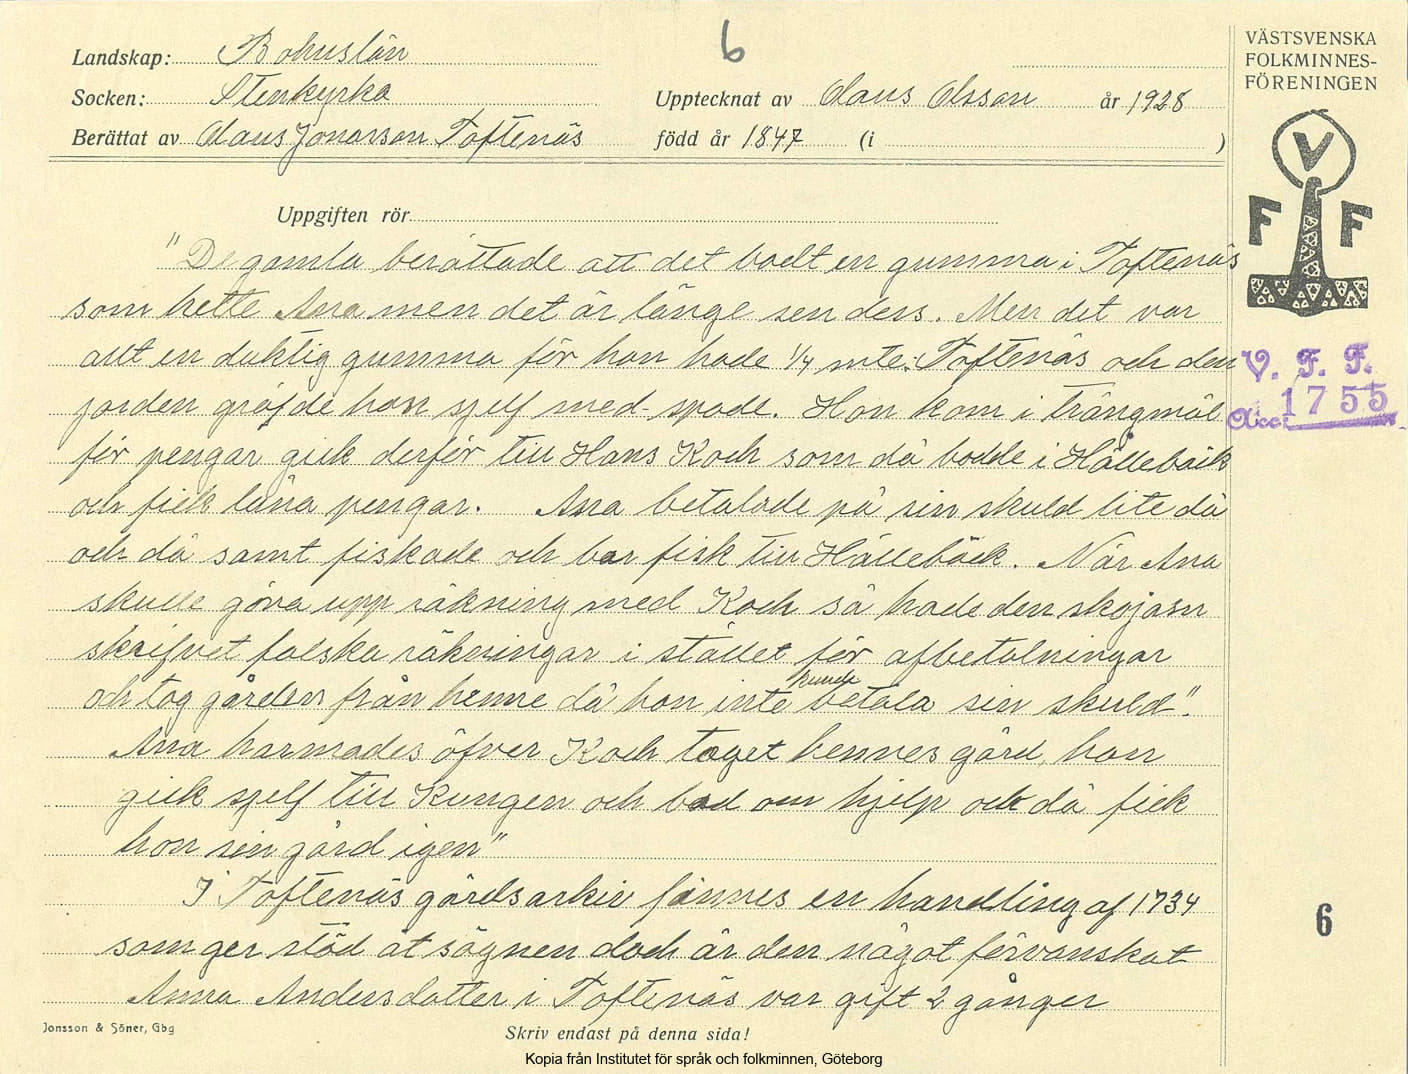 6
Landskap: Bohuslän
Socken: Stenkyrka
Upptecknat av Claus Olsson år 1928
Berättat av Claus Jonasson Toftenäs
född år 1847 (i )
VÄSTSVENSKA
FOLKMINNES-
FÖRENINGEN
V
F F
Uppgiften rör
"De gamla berättade att det boelt en gumma i Toftenäs
som hette Ana men det är länge sen dess. Men det var
att en duktig gumma för hon hade 1/4 mte: Toftenäs och den
jorden gräfde hon sjelf med spade. Hon kom i trångmål
för pengar gick derför till Hans Koch som då bodde i Hällebäck
och fick låna pengar. Ana betalade på sin skuld lite då
och då samt fiskade och bar fisk till Hällebäck. När Ana
skulle göra upp räkning med Koch så hade den skojarn
skrifvet falska räkningar i stället för afbetalningar
och tog gården från henne då hon inte kunde betala sin skuld".
Ana harmades öfver Koch taget hennes gård, hon
gick sjelf till Kungen och bad om hjelp och då fick
hon sin gård igen"
I Toftenäs gårdsarkiv finnes en handling af 1734
som ger stöd åt sägnen doch är den något förvanskat
Anna Andersdotter i Toftenäs var gift 2 gånger
V. F. F.
Acc: 1755
6
Jonsson & Söner, Gbg
Skriv endast på denna sida!
Kopia från Institutet för språk och folkminnen, Göteborg